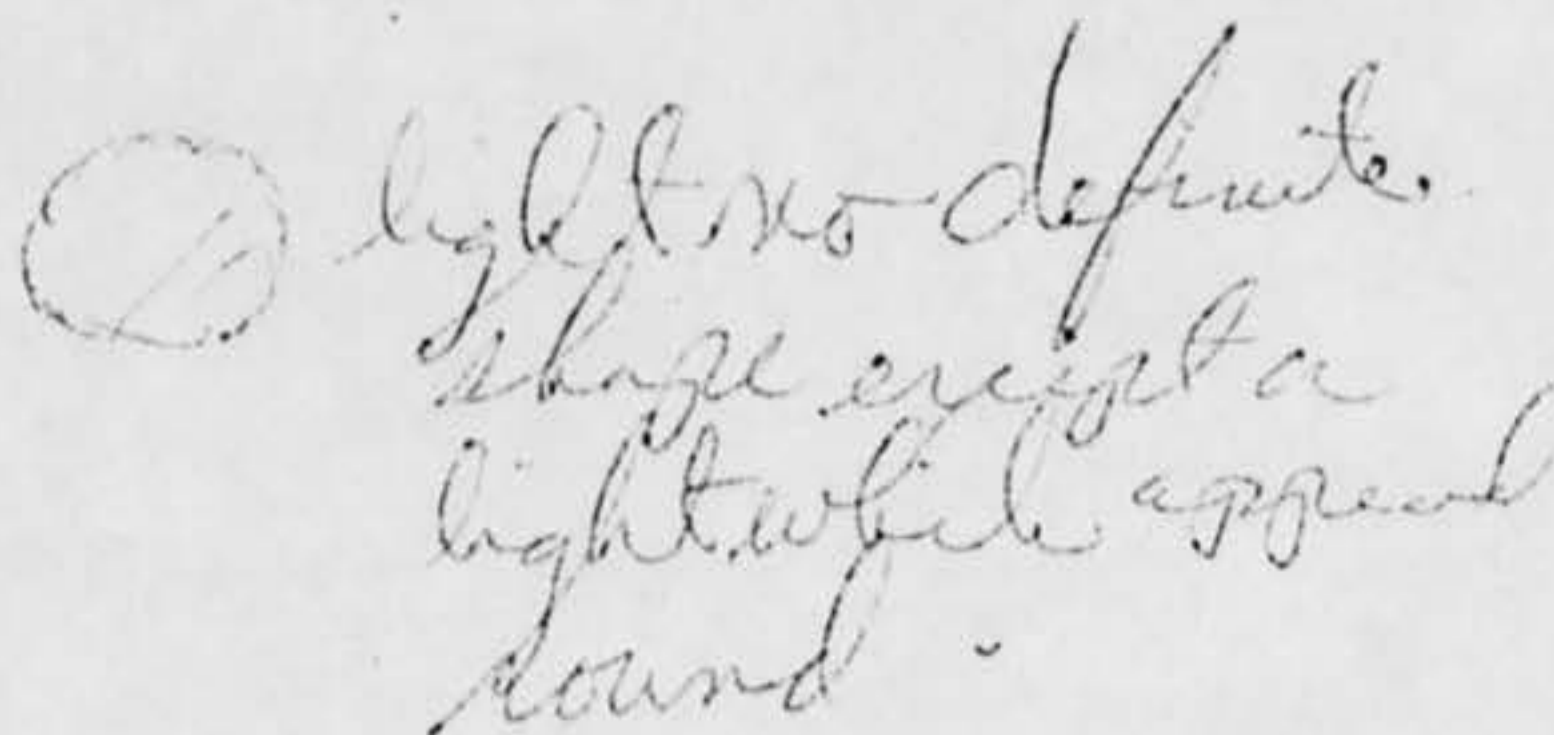 light no definite
shape except a
light which appeared
round.